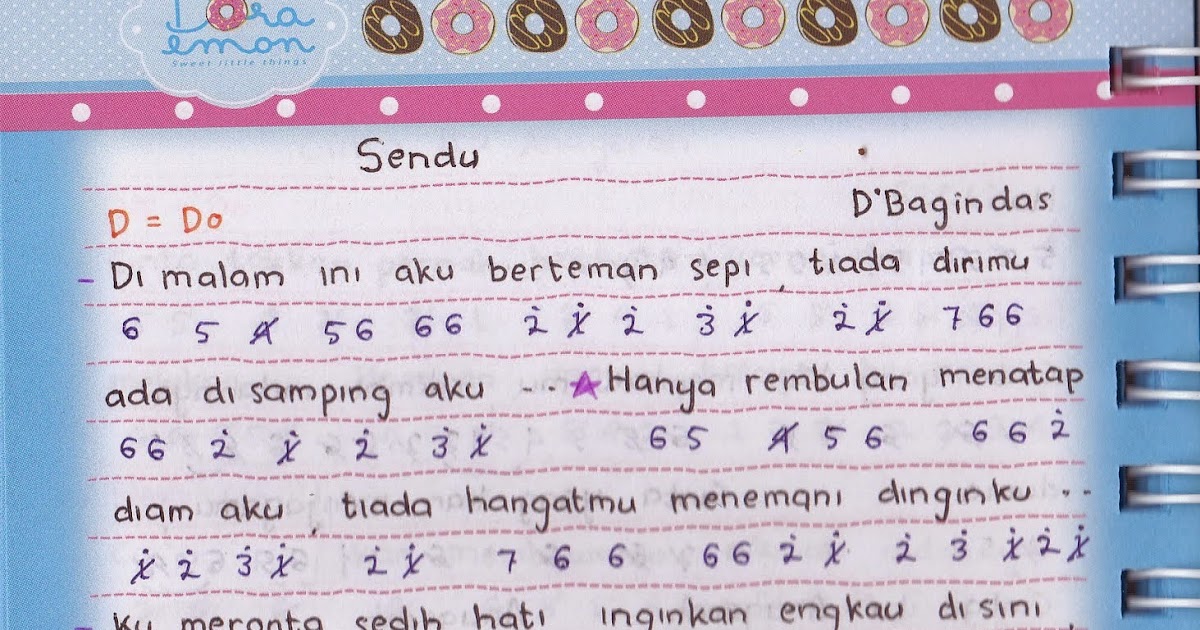 Dora
emon
Sweet little things
Sendu
D = Do
D'Bagindas
- Di malam ini aku berteman sepi, tiada dirimu
6 5 4̸ 5 6 6 6 2̇ 1̸̇ 2̇ 3̇ 1̸̇ 2̇ 1̸̇ 7 6 6
ada di samping aku ---☆ Hanya rembulan menatap
6 6 2̇ 1̸̇ 2̇ 3̇ 1̸̇ 6 5 4̸ 5 6 6 6 2̇
diam aku, tiada hangatmu menemani dinginku ..
1̸̇ 2̇ 3̇ 1̸̇ 2̇ 1̸̇ 7 6 6 6 6 2̇ 1̸̇ 2̇ 3̇ 1̸̇ 2̇ 1̸̇
- ku meronta sedih hati inginkan engkau di sini,